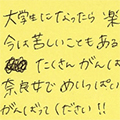 大学生になったら楽
今は苦しいこともある
たくさんがんば
奈良女でめいっぱい
がんばってください!!